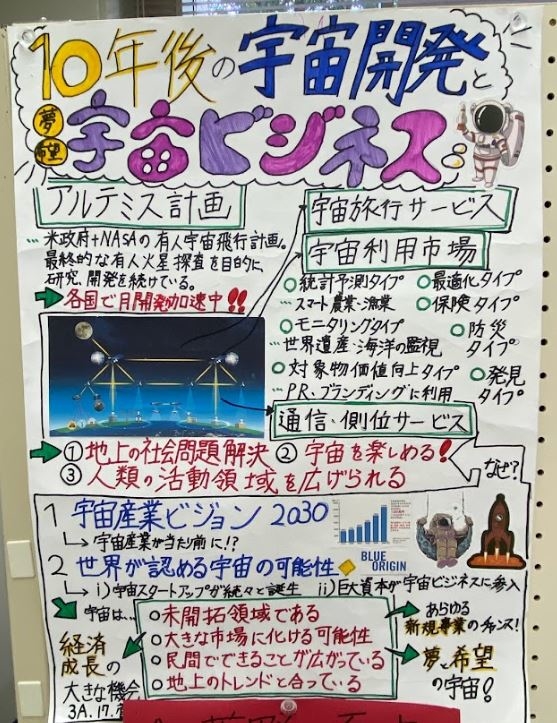 10年後の宇宙開発と
夢の宇宙ビジネス
アルテミス計画
… 米政府+NASAの有人宇宙飛行計画。
最終的な有人火星探査を目的に、
研究、開発を続けている。
→各国で月開発加速中!!
宇宙旅行サービス
宇宙利用市場
○統計予測タイプ ○最適化タイプ
… スマート農業・漁業 ○保険タイプ
○モニタリングタイプ ○防災
… 世界遺産・海洋の監視 タイプ
○対象物価値向上タイプ ○発見
… PR、ブランディングに利用 タイプ
通信・側位サービス
→①地上の社会問題解決 ②宇宙を楽しめる!
③人類の活動領域を広げられる
なぜ?
1 宇宙産業ビジョン2030
↳宇宙産業が当たり前に!?
BLUE
ORIGIN
2 世界が認める宇宙の可能性
↳ i)宇宙スタートアップが続々と誕生 ii)巨大資本が宇宙ビジネスに参入
↳宇宙は…
○未開拓領域である
○大きな市場に化ける可能性
○民間でできることが広がっている
○地上のトレンドと合っている
経済
成長の
大きな機会
→あらゆる
新規事業のチャンス!
→夢と希望
の宇宙!
3A.17.